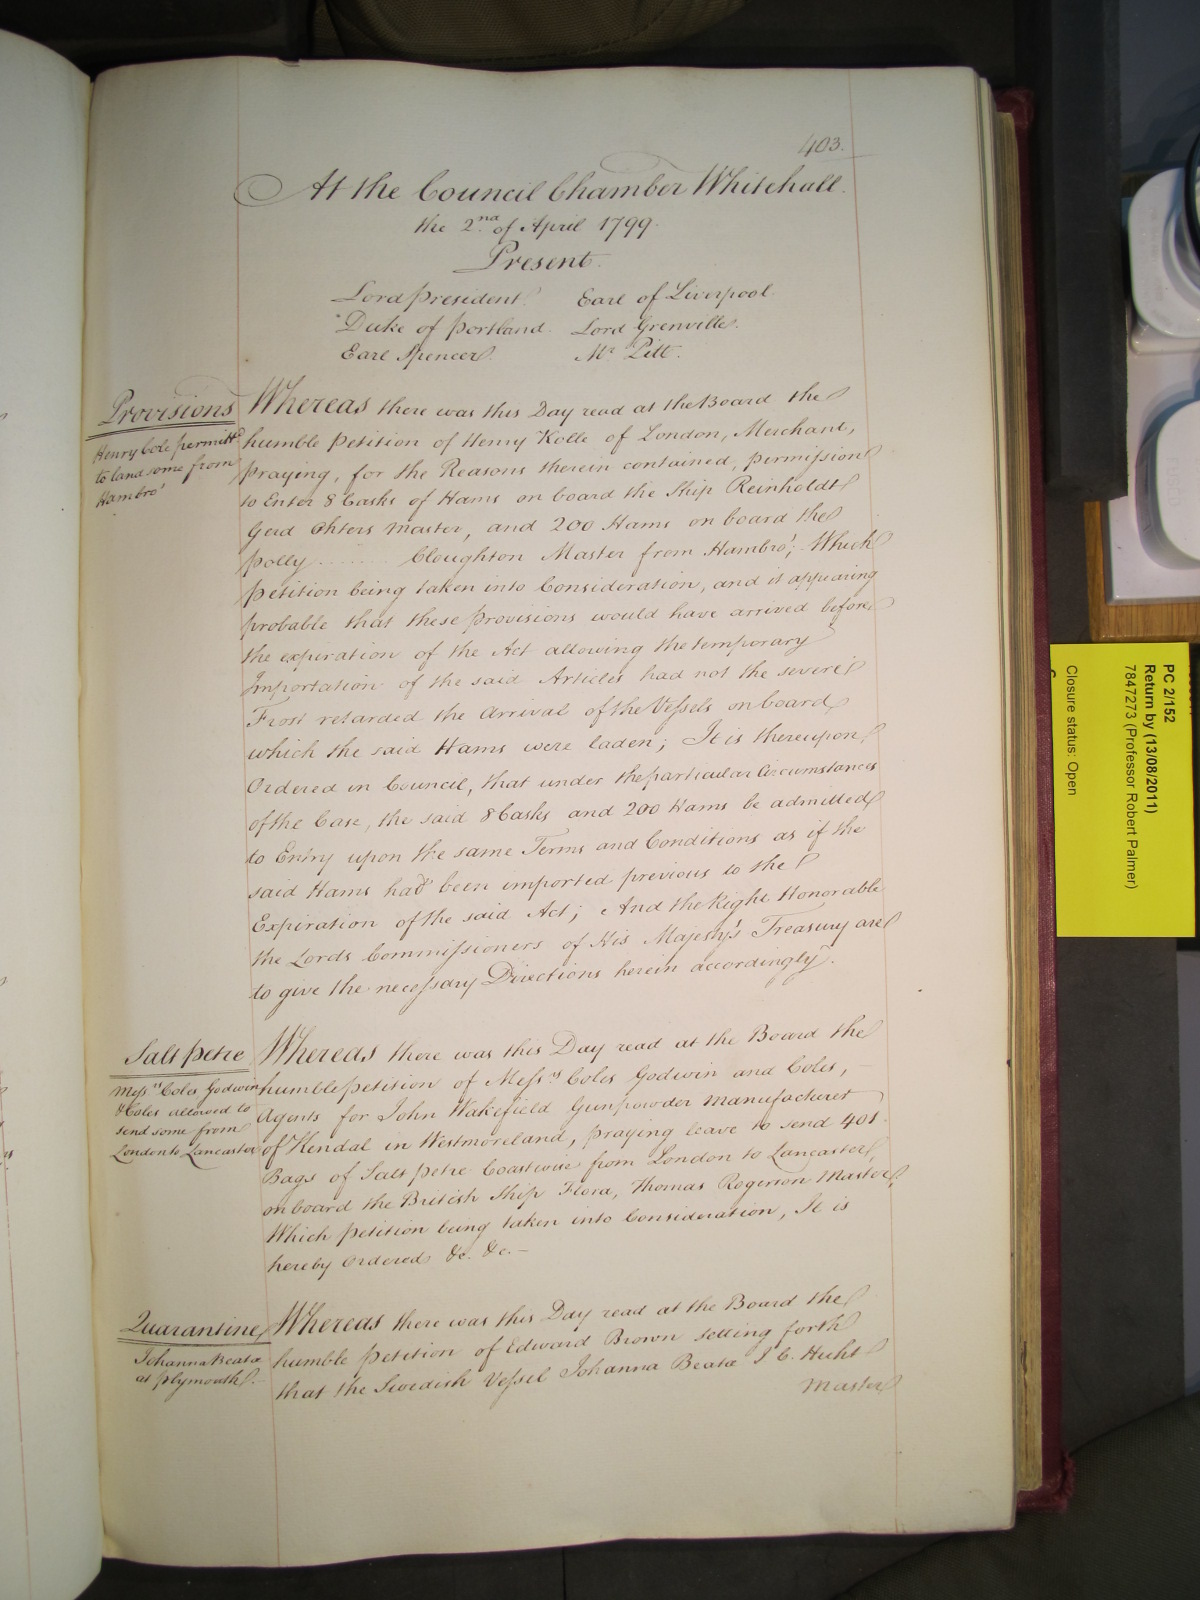 403.
At the Council Chamber Whitehall.
the 2.nd of April 1799.
Present.
Lord President. Earl of Liverpool.
Duke of Portland. Lord Grenville.
Earl Spencer. Mr. Pitt.
Provisions
Henry Cole permitted
to land some from
Hambro'
Whereas there was this Day read at the Board the
humble Petition of Henry Kolle of London, Merchant,
praying, for the Reasons therein contained, permission
to Enter 8 Casks of Hams on board the Ship Reinholdt
Gerd Ehlers Master, and 200 Hams on board the
Polly ........ Cloughton Master from Hambro'; Which
Petition being taken into Consideration, and it appearing
probable that these Provisions would have arrived before
the expiration of the Act allowing the temporary
Importation of the said Articles had not the severe
Frost retarded the Arrival of the Vessels on board
which the said Hams were laden; It is thereupon
Ordered in Council, that under the particular Circumstances
of the Case, the said 8 Casks and 200 Hams be admitted
to Entry upon the same Terms and Conditions as if the
said Hams had been imported previous to the
Expiration of the said Act; And the Right Honorable
the Lords Commissioners of His Majesty's Treasury are
to give the necessary Directions herein accordingly.
Salt petre
Messrs Coles Godwin
& Coles allowed to
send some from
London to Lancaster
Whereas there was this Day read at the Board the
humble petition of Messrs Coles Godwin and Coles,
Agents for John Wakefield Gunpowder Manufacturer
of Kendal in Westmoreland, praying leave to send 401
Bags of Salt petre Coastwise from London to Lancaster,
on board the British Ship Flora, Thomas Rogerson Master,
Which petition being taken into Consideration, It is
hereby Ordered &c. &c.—
Quarantine
Johanna Beata
at Plymouth.
Whereas there was this Day read at the Board the
humble petition of Edward Brown setting forth
that the Swedish Vessel Johanna Beata I C. Huht
Master
PC 2/152
Return by (13/08/2011)
7847273 (Professor Robert Palmer)
Closure status: Open